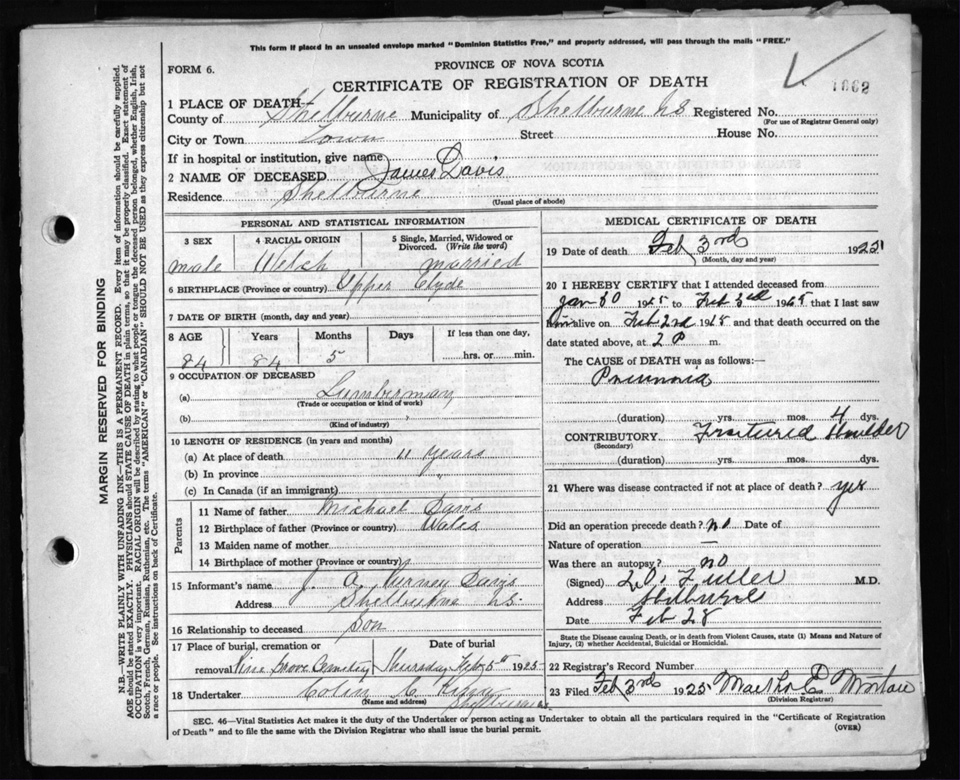 This form if placed in an unsealed envelope marked "Dominion Statistics Free," and properly addressed, will pass through the mails "FREE."
FORM 6.
PROVINCE OF NOVA SCOTIA
CERTIFICATE OF REGISTRATION OF DEATH
1062
1 PLACE OF DEATH—
County of Shelburne Municipality of Shelburne NS Registered No.
(For use of Registrar General only)
City or Town Town Street House No.
If in hospital or institution, give name
2 NAME OF DECEASED James Davis
Residence Shelbourne
(Usual place of abode)
PERSONAL AND STATISTICAL INFORMATION
3 SEX 4 RACIAL ORIGIN 5 Single, Married, Widowed or Divorced. (Write the word)
male Welsh married
6 BIRTHPLACE (Province or country) Upper Clyde
7 DATE OF BIRTH (month, day and year)
8 AGE Years Months Days If less than one day,
84 84 5 hrs. or min.
9 OCCUPATION OF DECEASED
(a) Lumberman
(Trade or occupation or kind of work)
(b)
(Kind of industry)
10 LENGTH OF RESIDENCE (in years and months)
(a) At place of death 11 years
(b) In province "
(c) In Canada (if an immigrant)
Parents
11 Name of father Michael Davis
12 Birthplace of father (Province or country) Wales
13 Maiden name of mother
14 Birthplace of mother (Province or country)
15 Informant's name J. A. Davis
Address Shelburne NS.
16 Relationship to deceased Son
17 Place of burial, cremation or removal Date of burial
Pine Grove Cemetery Thursday Feb 5th 1925
18 Undertaker Colin C.
(Name and address) Shelburne
MEDICAL CERTIFICATE OF DEATH
19 Date of death Feb 3rd 1925
(Month, day and year)
20 I HEREBY CERTIFY that I attended deceased from
Jan 30 19 to Feb 3rd 19 that I last saw
him alive on Feb 2nd 19 and that death occurred on the
date stated above, at 2 P m.
The CAUSE OF DEATH was as follows:
Pneumonia
(duration) yrs. mos. 4 dys.
CONTRIBUTORY Fractured Shoulder
(Secondary)
(duration) yrs. mos. dys.
21 Where was disease contracted if not at place of death? yes
Did an operation precede death? no Date of
Nature of operation —
Was there an autopsy? no
(Signed) L.O. Fuller M.D.
Address Shelburne
Date Feb 28
State the Disease causing Death, or in death from Violent Causes, state (1) Means and Nature of Injury, (2) whether Accidental, Suicidal or Homicidal.
22 Registrar's Record Number
23 Filed Feb 3rd 1925 Martha E
(Division Registrar)
SEC. 46—Vital Statistics Act makes it the duty of the Undertaker or person acting as Undertaker to obtain all the particulars required in the "Certificate of Registration
of Death" and to file the same with the Division Registrar who shall issue the burial permit. (OVER)
MARGIN RESERVED FOR BINDING
N.B.—WRITE PLAINLY WITH UNFADING INK—THIS IS A PERMANENT RECORD. Every item of information should be carefully supplied.
AGE should be stated EXACTLY. PHYSICIANS should STATE CAUSE OF DEATH in plain terms, so that it may be properly classified. Exact statement of
OCCUPATION is very important. RACIAL ORIGIN will be described by stating to what people or tongue the deceased person belonged, whether English, Irish,
Scotch, French, German, Russian, Ruthenian, etc. The terms "AMERICAN" or "CANADIAN" SHOULD NOT BE USED as they express citizenship but not
a race or people. See instructions on back of Certificate.